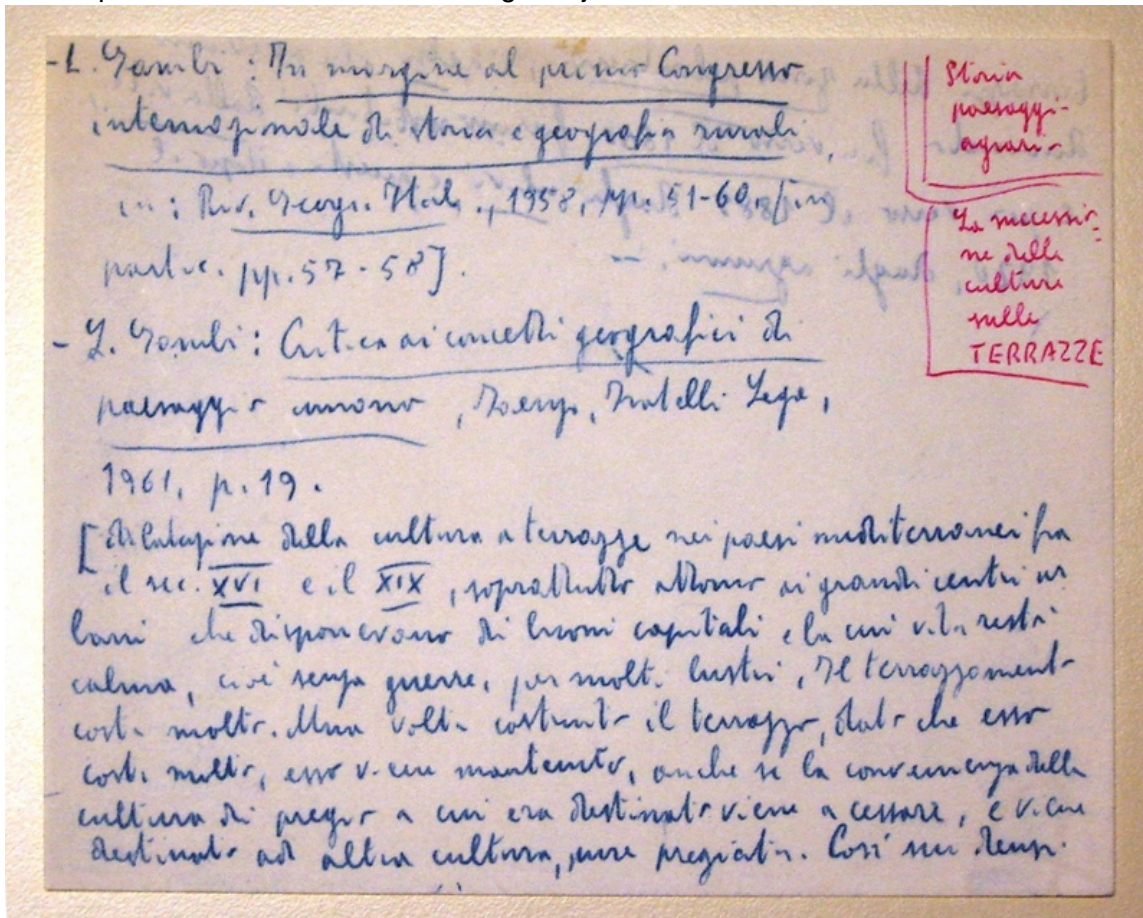 - L. Gambi: In margine al primo Congresso
internazionale di storia e geografia rurali,
in: Riv. Geogr. Ital., 1958, pp. 51-60, [in
partic. pp. 57-58].
- L. Gambi: Critica ai concetti geografici di
paesaggio umano, Faenza, Fratelli Lega,
1961, p. 19.
[dilatazione della cultura a terrazze nei paesi mediterranei fra
il sec. XVI e il XIX, soprattutto attorno ai grandi centri ur
bani che disponevano di buoni capitali e la cui vita restò
calma, cioè senza guerre, per molti lustri. Il terrazzamento
costa molto. Una volta costruito il terrazzo, dato che esso
costa molto, esso viene mantenuto, anche se la convenienza della
cultura di pregio a cui era destinato viene a cessare, e viene
destinato ad altra cultura, pure pregiata. Così sui
Storia
paesaggi
agrari -
La successio-
ne delle
culture
sulle
TERRAZZE